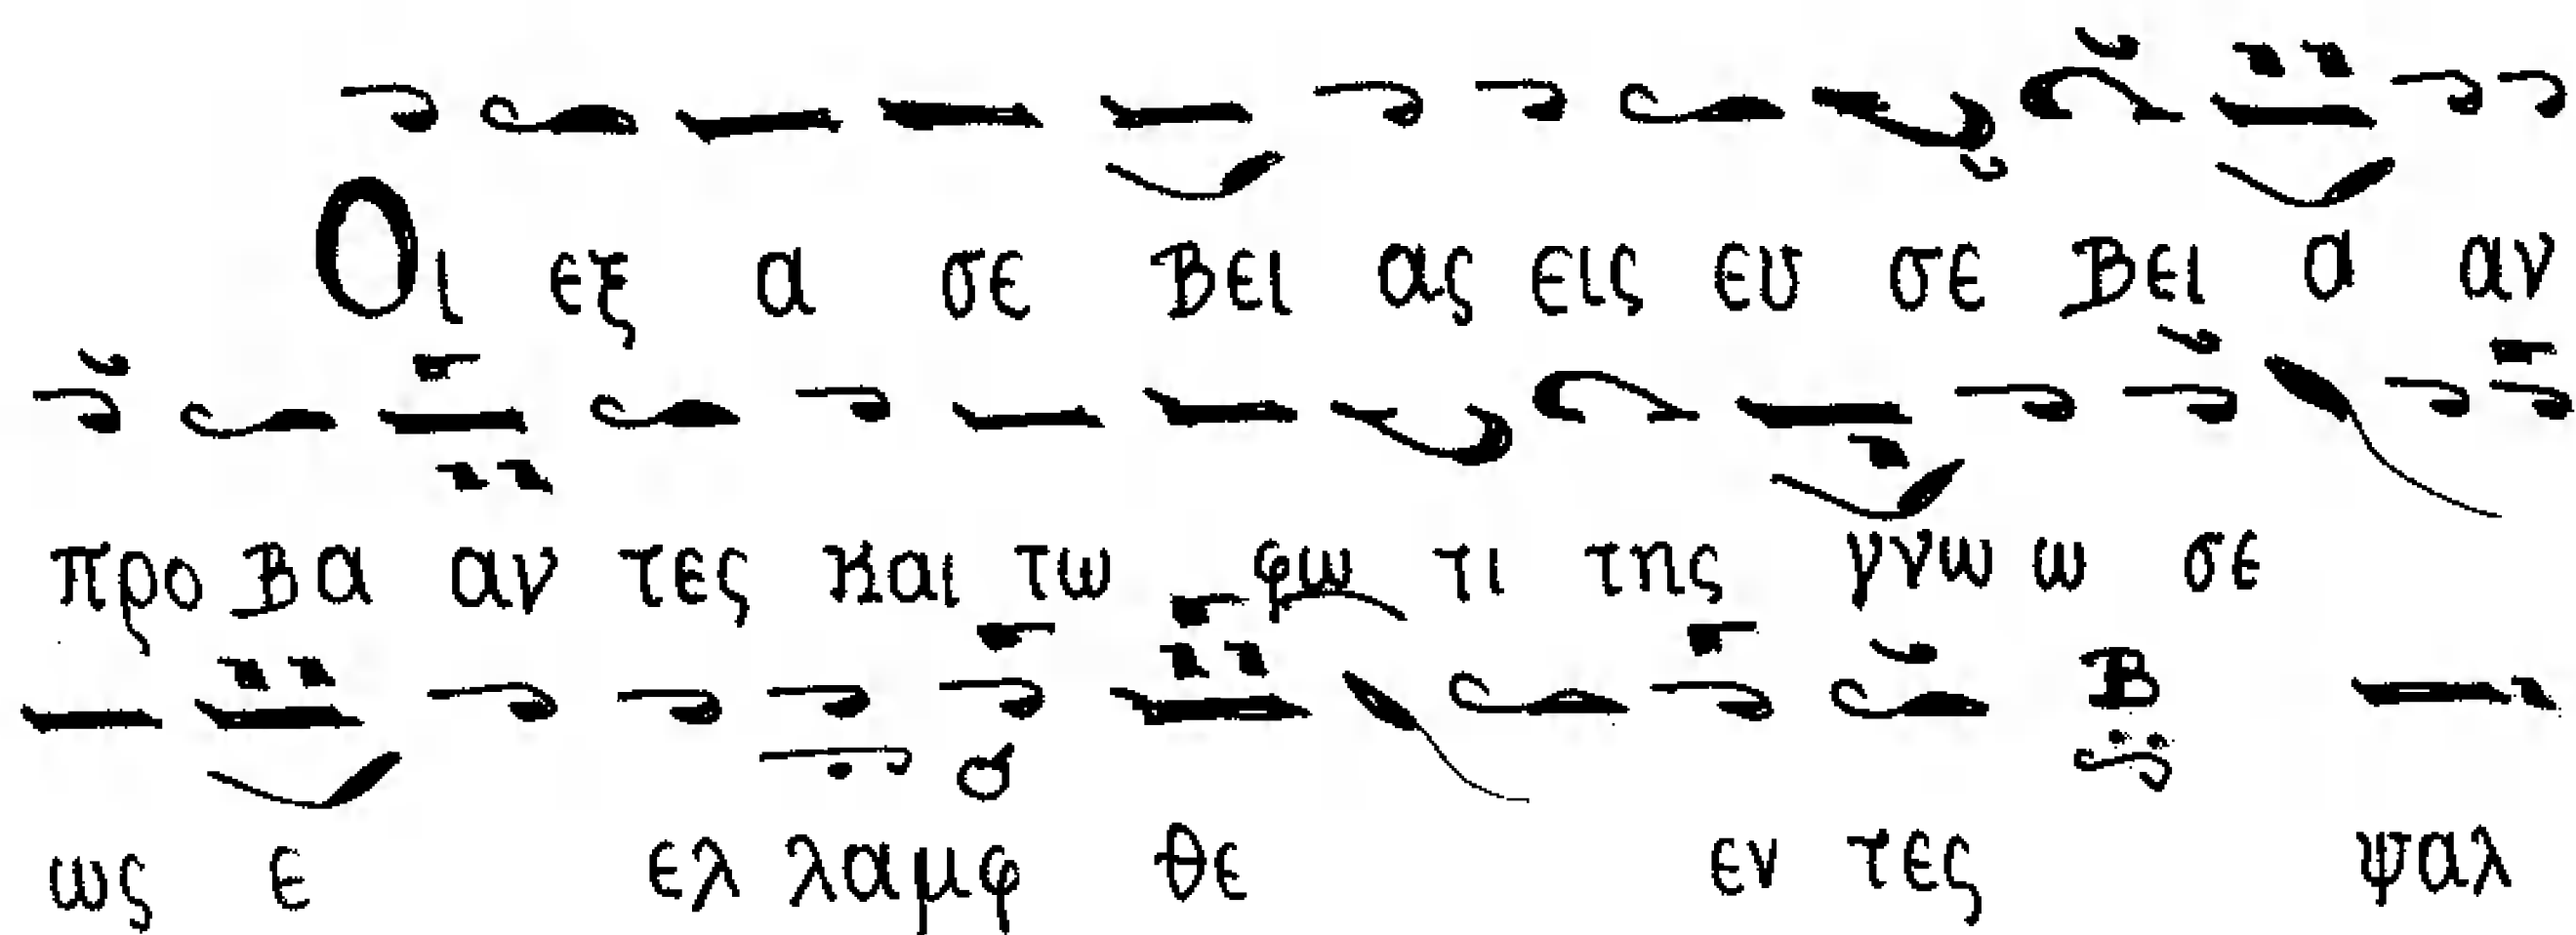 Οι εξ α σε βει ας εις ευ σε βει α αν
προ βα αν τες και τω φω τι της γνω ω σε
ως ε ελ λαμφ θε εν τες β ψαλ